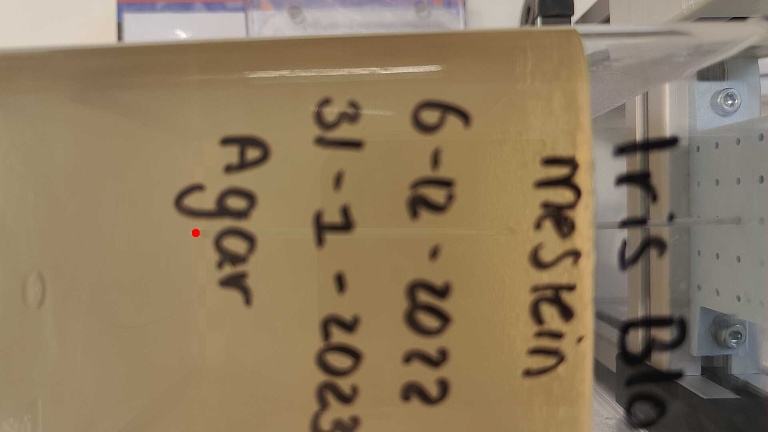 Iris Blo
mestein
6-12-2022
31-1-2023
Agar